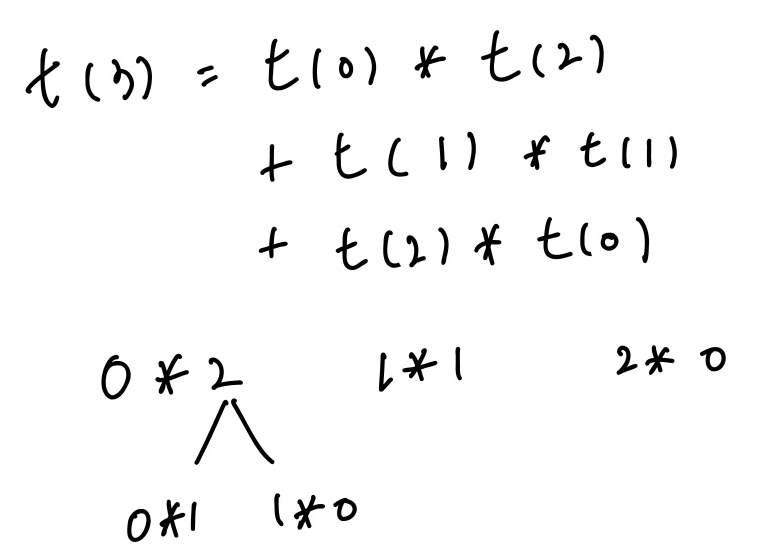 t(3) = t(0) * t(2)
+ t(1) * t(1)
+ t(2) * t(0)
0 * 2 1 * 1 2 * 0
0*1 1*0